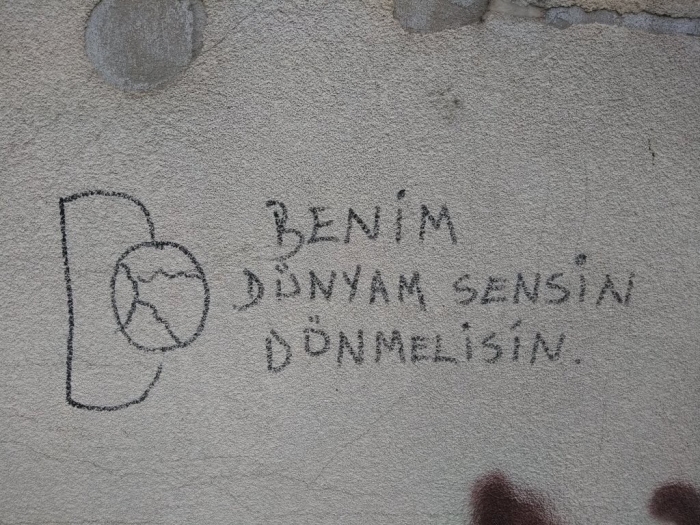 BENİM
DÜNYAM SENSİN
DÖNMELİSİN.